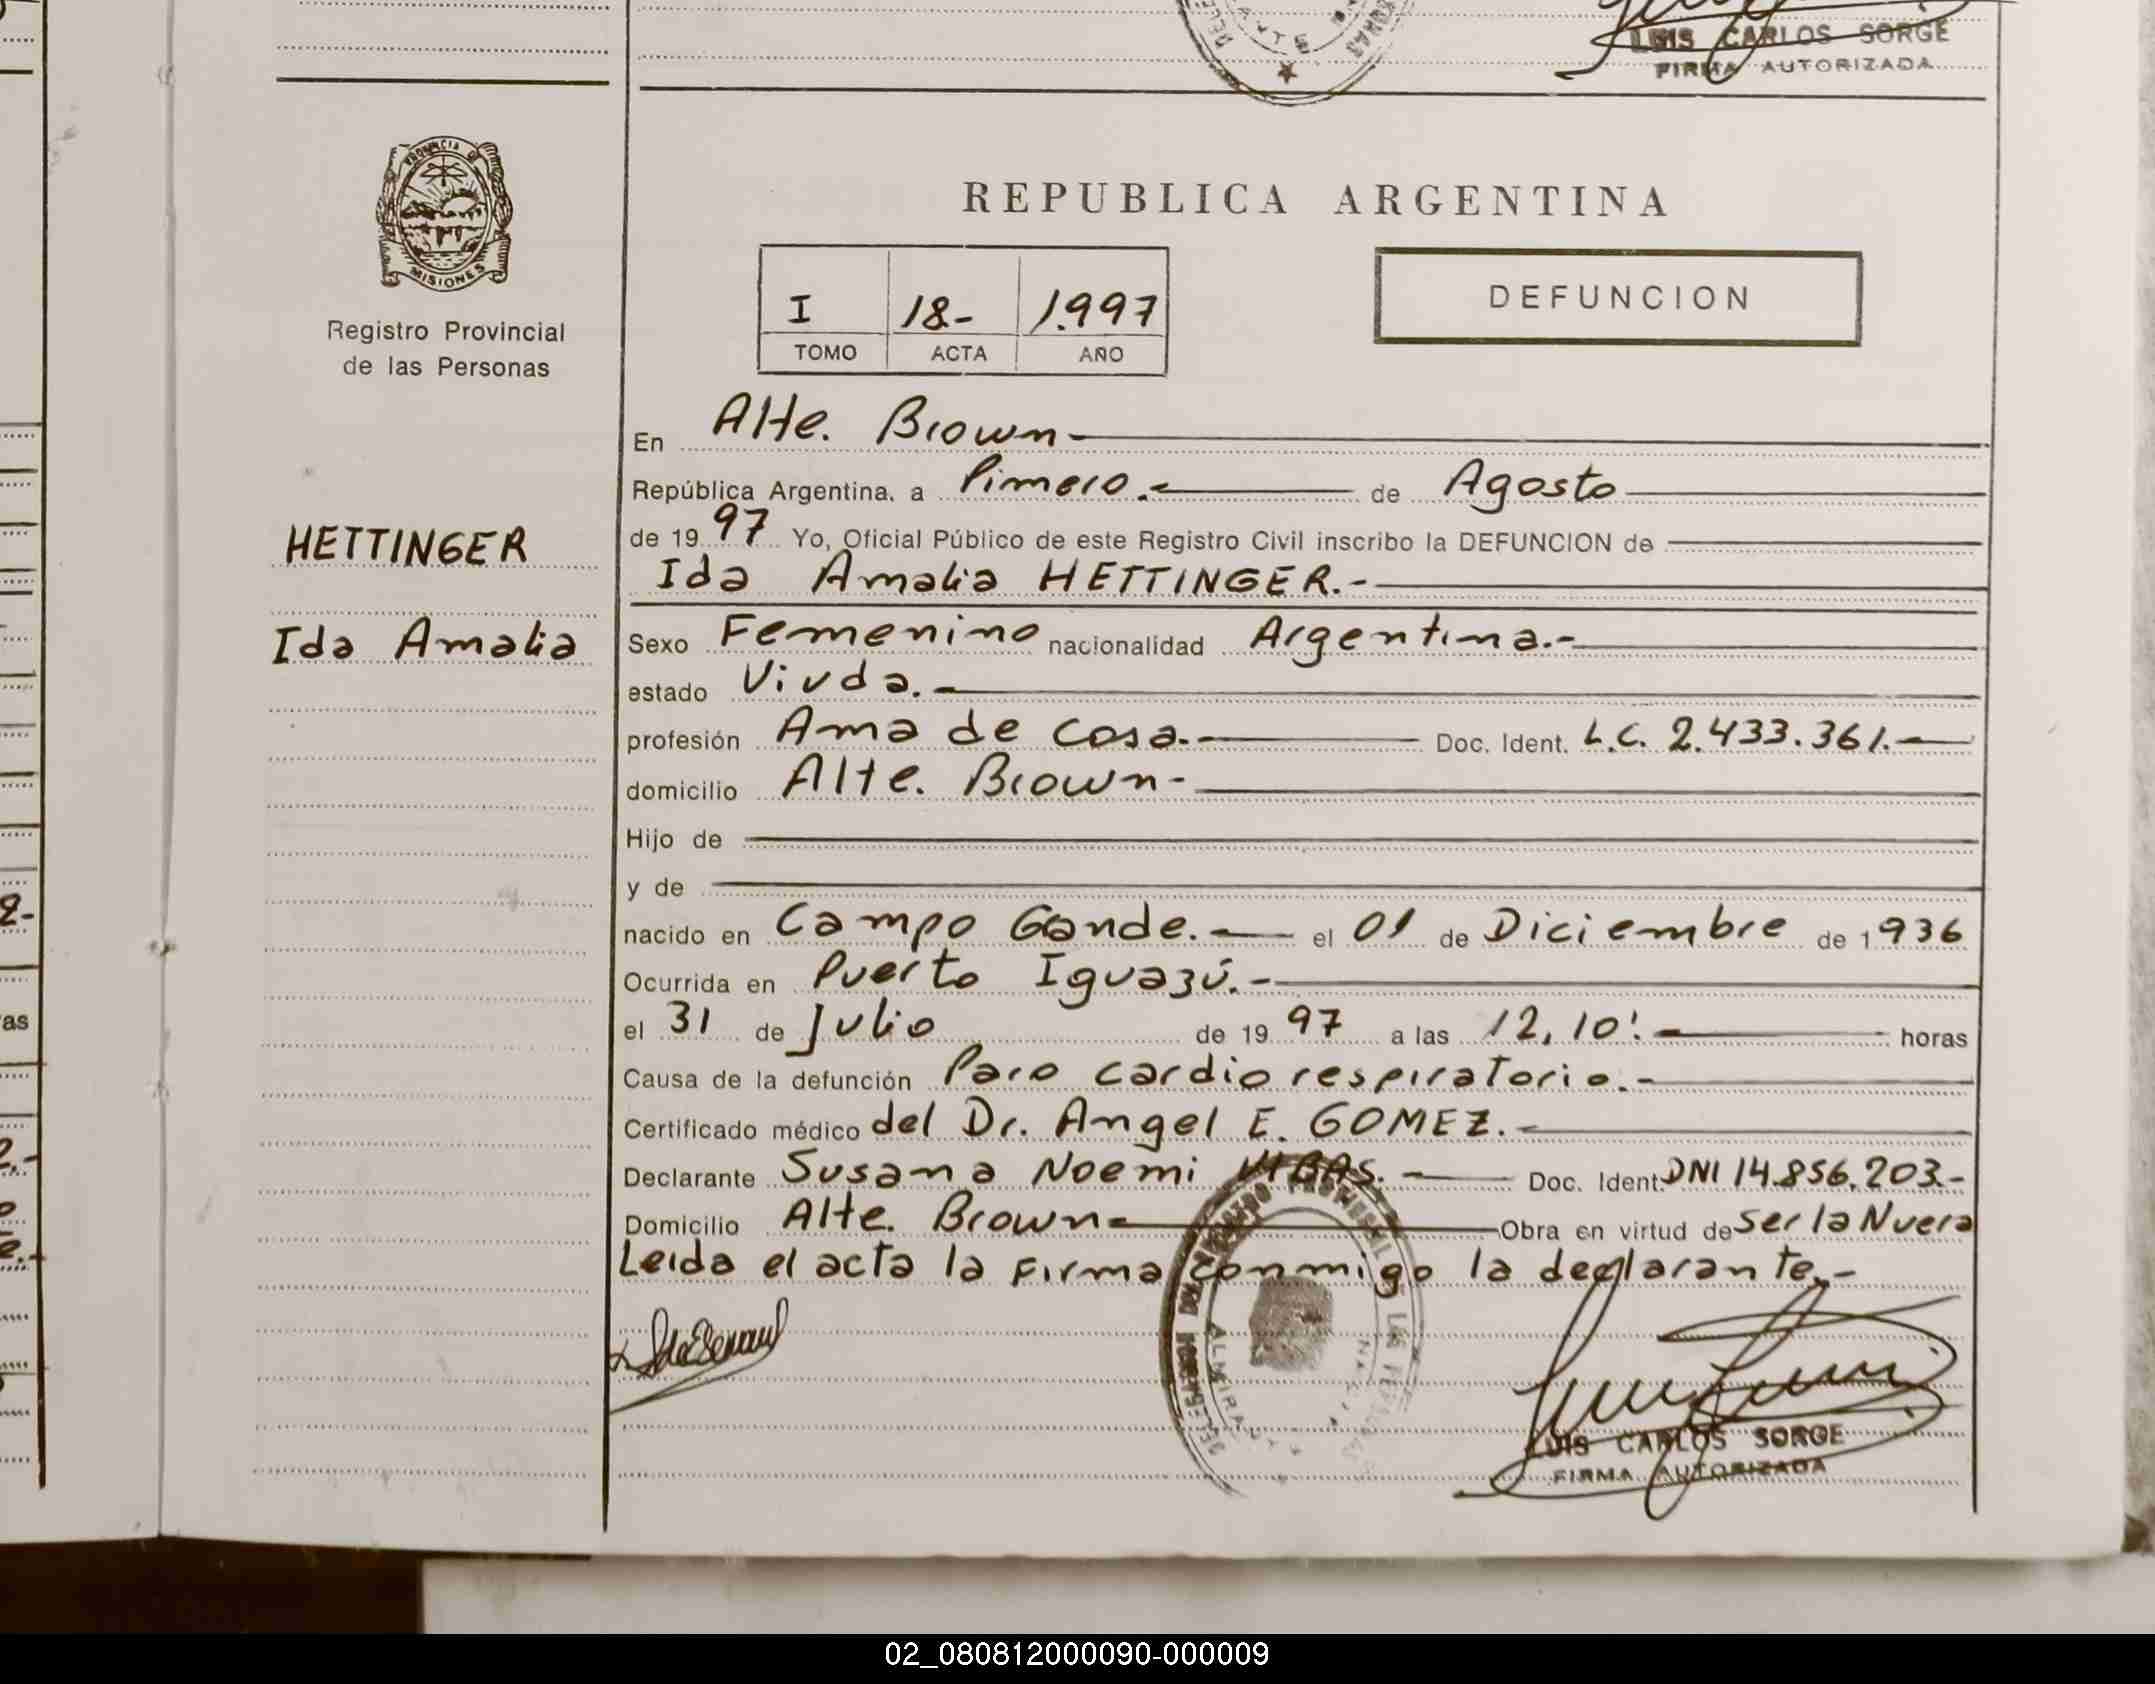 LUIS CARLOS SORGE
FIRMA AUTORIZADA
PROVINCIA D
MISIONES
Registro Provincial
de las Personas
HETTINGER
Ida Amalia
REPUBLICA ARGENTINA
I 18- 1.997
TOMO ACTA AÑO
DEFUNCION
En Alte. Brown-
República Argentina, a Pimero.- de Agosto
de 19 97 Yo, Oficial Público de este Registro Civil inscribo la DEFUNCION de
Ida Amalia HETTINGER.-
Sexo Femenino nacionalidad Argentina.-
estado Viuda.-
profesión Ama de casa.- Doc. Ident. L.C. 2.433.361.-
domicilio Alte. Brown-
Hijo de
y de
nacido en Campo Gande.- el 01 de Diciembre de 1936
Ocurrida en Puerto Iguazú.-
el 31 de Julio de 19 97 a las 12,10'.- horas
Causa de la defunción Paro cardio respiratorio.-
Certificado médico del Dr. Angel E. GOMEZ.-
Declarante Susana Noemi Doc. Ident. DNI 14.856.203.-
Domicilio Alte. Brown- Obra en virtud de Ser la Nuera
Leida el acta la firma conmigo la declarante.-
LUIS CARLOS SORGE
FIRMA AUTORIZADA
02_080812000090-000009